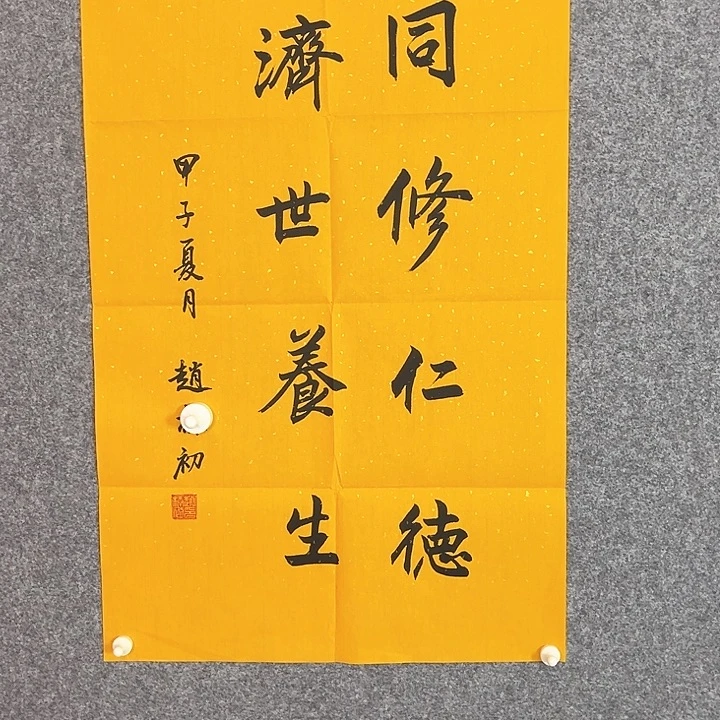 同修仁德
濟世養生
甲子夏月 趙初